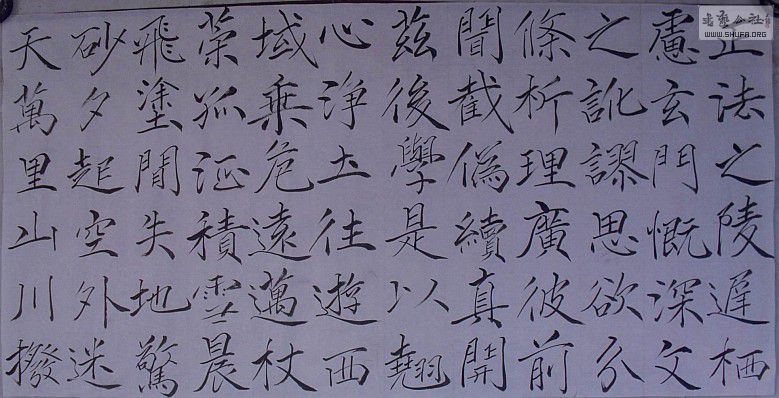 正法之陵遲栖
慮玄門慨深文
之訛謬思欲分
條析理廣彼前
聞截偽續真開
茲後學是以翹
心浄土往遊西
域乘危遠邁杖
策孤征積雪晨
飛塗間失地驚
砂夕起空外迷
天萬里山川撥
书艺公社
WWW.SHUFA.ORG